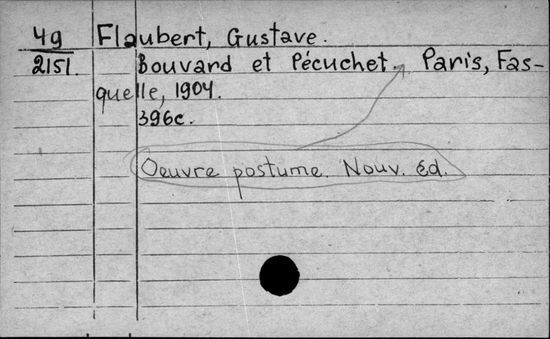 4g Flaubert, Gustave.
2151. Bouvard et Pécuchet. Paris, Fas-
quelle, 1904.
396c.
Oeuvre postume. Nouv. éd.